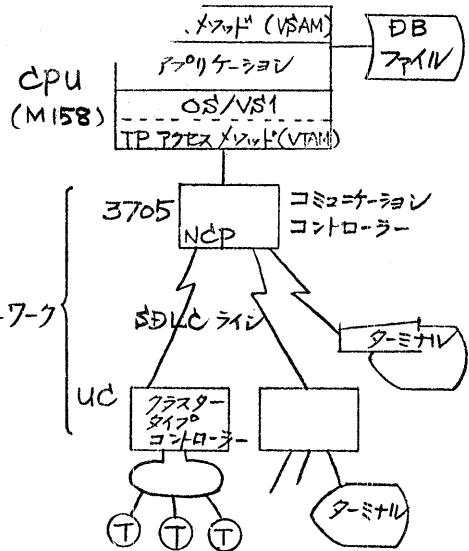 ．メソッド (VSAM)
DB
ファイル
アプリケーション
CPU
(M158)
OS/VS1
TPアクセスメソッド(VTAM)
3705
NCP
コミュニケーション
コントローラー
ワーク
SDLCライン
ターミナル
UC
クラスター
タイプ
コントローラー
T T T
ターミナル